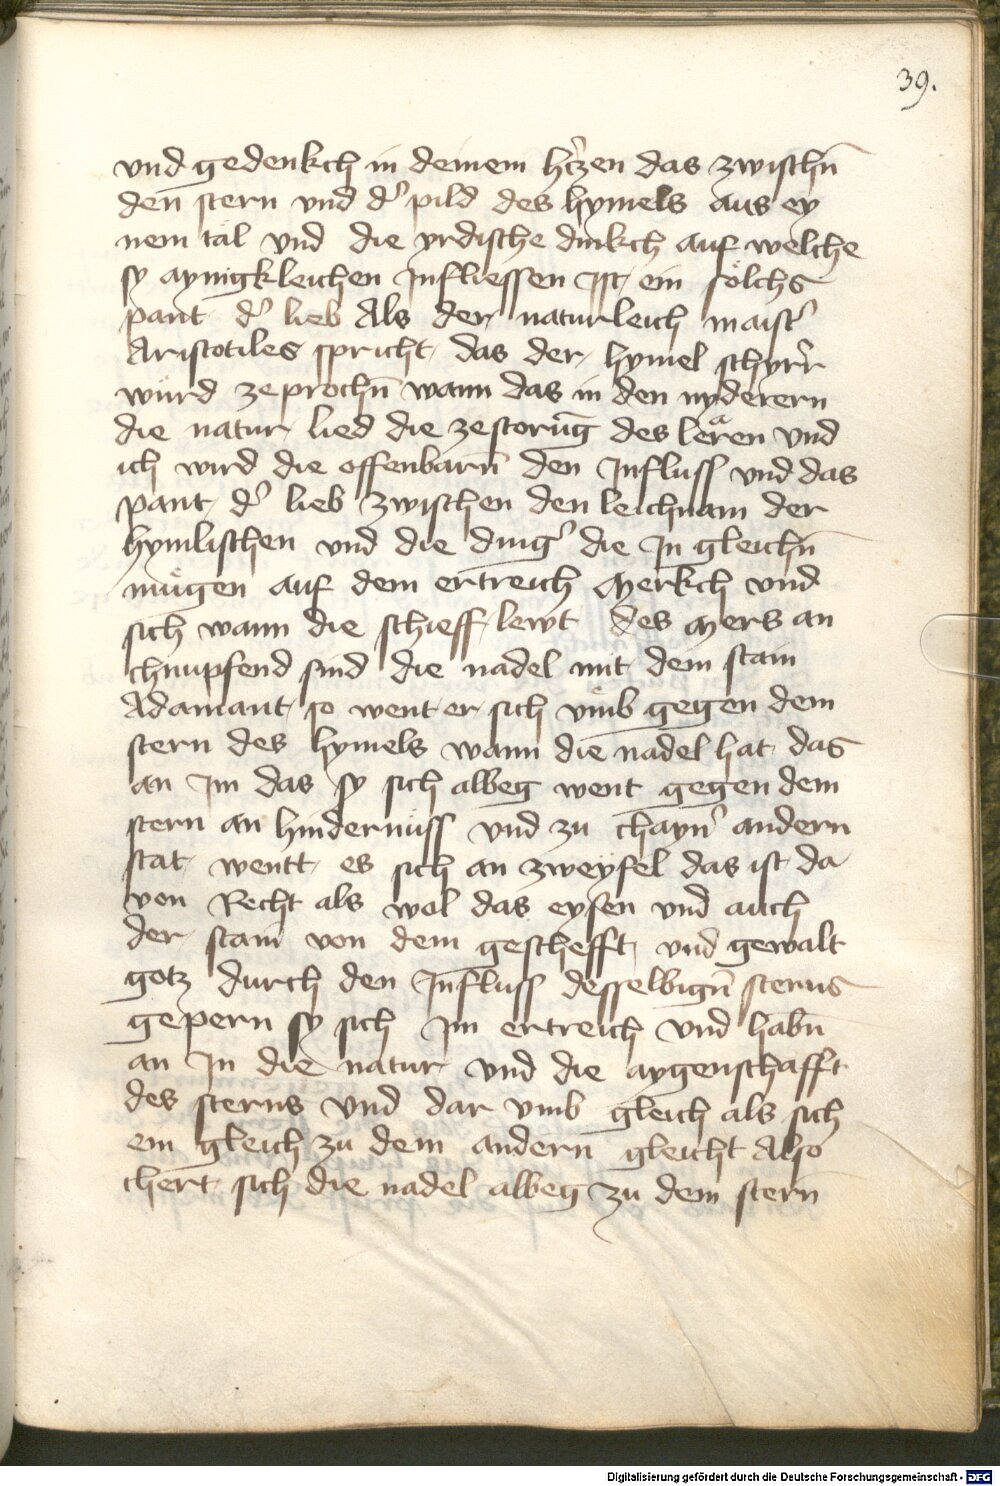 39.
vnd gedenkch in deinem h'tzen das zwischn̄
den stern vnd d' pild des hymels aus ey
nem tal vnd die yrdische dinkch auf welche
sy aynigkleichen Jnfliessen Jst ein sölchs
pant d' lieb Als der naturleich maist'
Aristotiles spricht das der hymel schyr'r
würd zeprochn̄ wann das in den nyderern
die natur lied die zestorūg des lerͣen vnd
ich wird die offenbarn̄ den Jnfluss vnd das
pant d' lieb zwischen den leichnam der
hymlischen vnd die ding' die Jn gleichn̄
mügen auf dem ertreich Merkch vnd
sich wann die schieff lewt des Mers an
chnupfend sind die nadel mit dem stain
Adamant so went er sich vmb gegen dem
stern des hymels wann die nadel hat das
an Jm das sy sich albeg went gegen dem
stern an hindernüss vnd zu chayn' andern
stat wentt es sich an zweyfel das ist da
von Recht als wol das eysen vnd auch
der stain von dem geschefft vnd gewalt
gotz durch den Jnfluss desselbign̄ sterns
gepern sy sich Jm ertreich vnd habn̄
an Jn die natur vnd die aygenschafft
des sterns vnd dar vmb gleich als sich
ein gleich zu dem andern gleicht Also
chert sich die nadel albeg zu dem stern
Digitalisierung gefördert durch die Deutsche Forschungsgemeinschaft - DFG